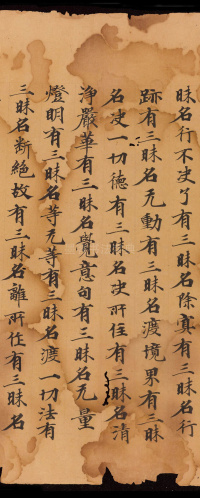 昧名行不决了有三昧名除冥有三昧名行
跡有三昧名无動有三昧名渡境界有三昧
名决一切德有三昧名决所住有三昧名清
净嚴華有三昧名覺意句有三昧名无量
燈明有三昧名等无等有三昧名渡一切法有
三昧名断絶故有三昧名離所住有三昧名